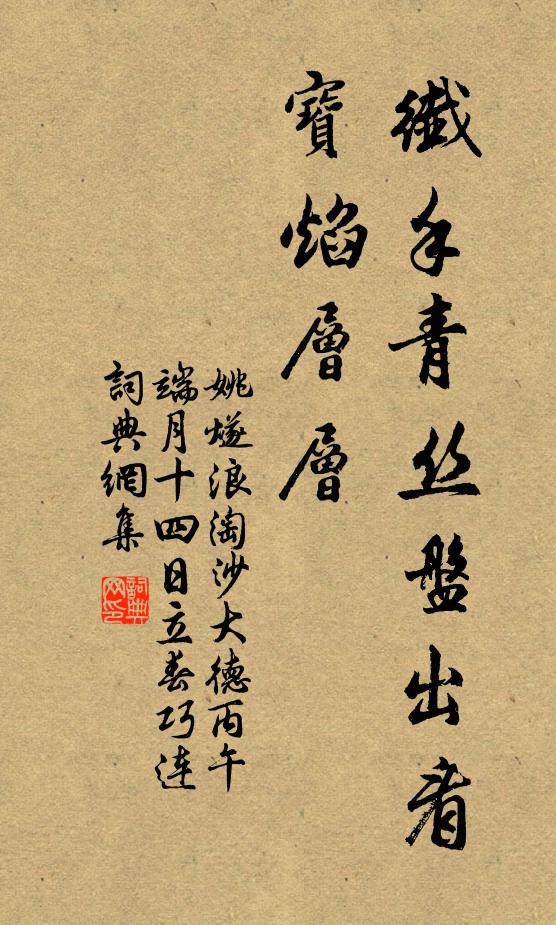 纖手青丝盤出看
寶焰層層
姚燧浪淘沙大德丙午
端月十四日立春巧連
詞典網集
詞典網印